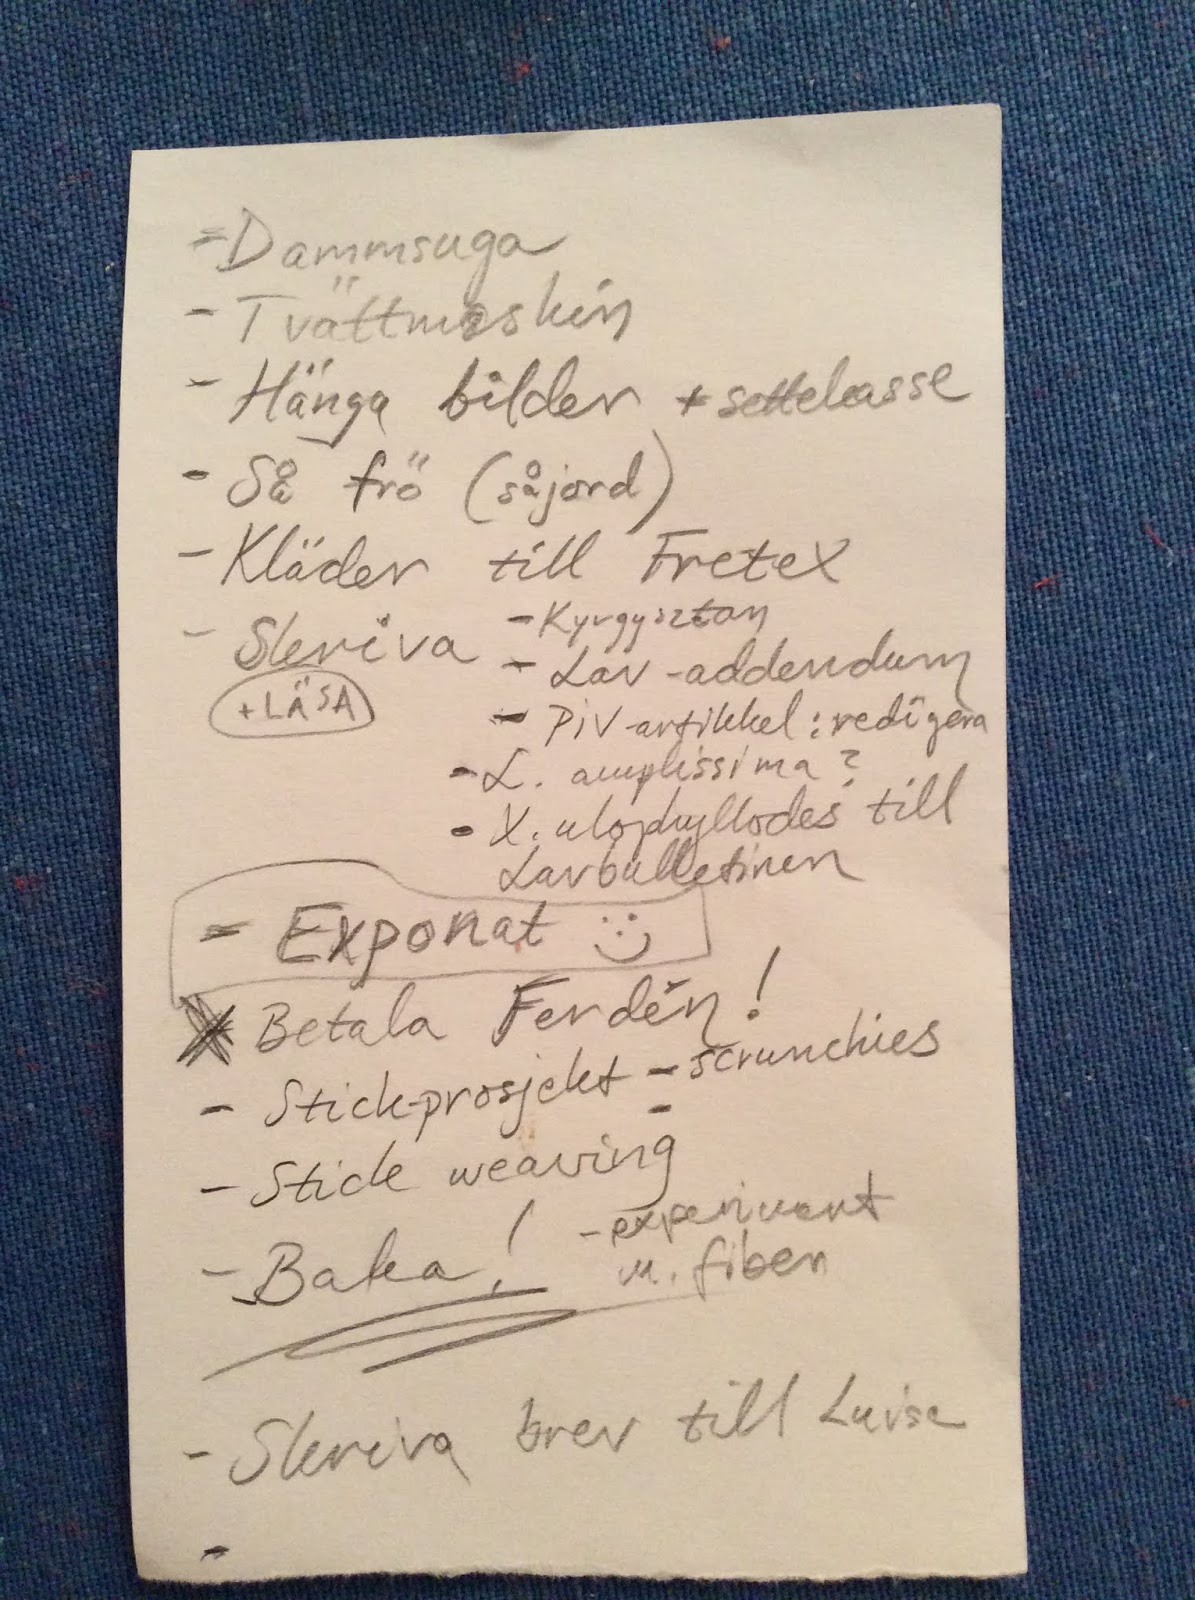 - Dammsuga
- Tvättmaskin
- Hänga bilder + settekasse
- Så frö (såjord)
- Kläder till Fretex
- Skriva - Kyrgyzstan
+ LÄSA
- Lav-addendum
- PiV-artikkel: redigera
- L. amplissima?
- X. ulophyllodes till
Lavbulletinen
- Exponat :)
Betala Ferdén!
- Stick-prosjekt - scrunchies
-
- Stick weaving
- Baka! - experiment
m. fiber
- Skriva brev till Luise
-